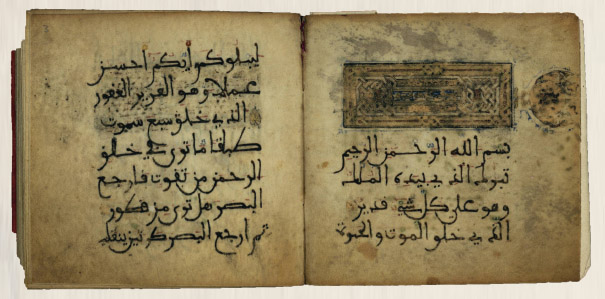 بسم الله الرحمن الرحيم
تبرك الذي بيده الملك
وهو على كل شي قدير
الذي خلق الموت والحيوة
ليبلوكم أيكم أحسن
عملا وهو العزيز الغفور
الذي خلق سبع سموت
طباقا ما ترى في خلق
الرحمن من تفوت فارجع
البصر هل ترى من فطور
ثم ارجع البصر كرتين ينقلب